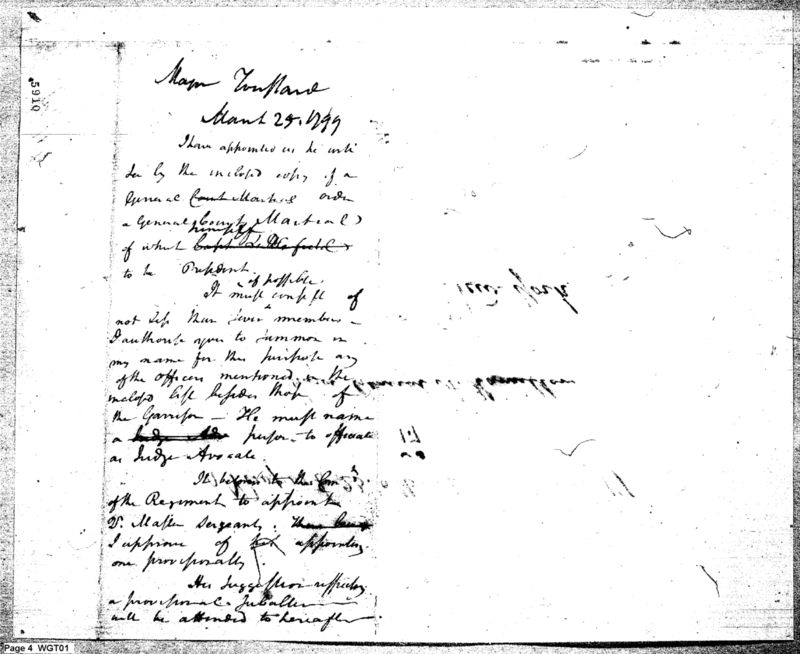 5910
Major Toussard
March 25. 1799
I have appointed as he will
see by the inclosed copy of a
General Court Martial order
a General Court Martial
of which himself Capt Littlefield
to be President.
It must consist if possible of
not less than seven members –
I authorise you to summon in
my name for this purpose any
of the officers mentioned in the
inclosed list besides those of
the Garrison – He must name
a Judge Adv person to officiate
as Judge Avocate.
It belongs to the Com
of the Regiment to appoint
Qr. Master Sergeants.
I approve of his appointing
one provisionally
His suggestion respecting
a provisional Subaltern
will be attended to hereafter
Page 4 WGT01